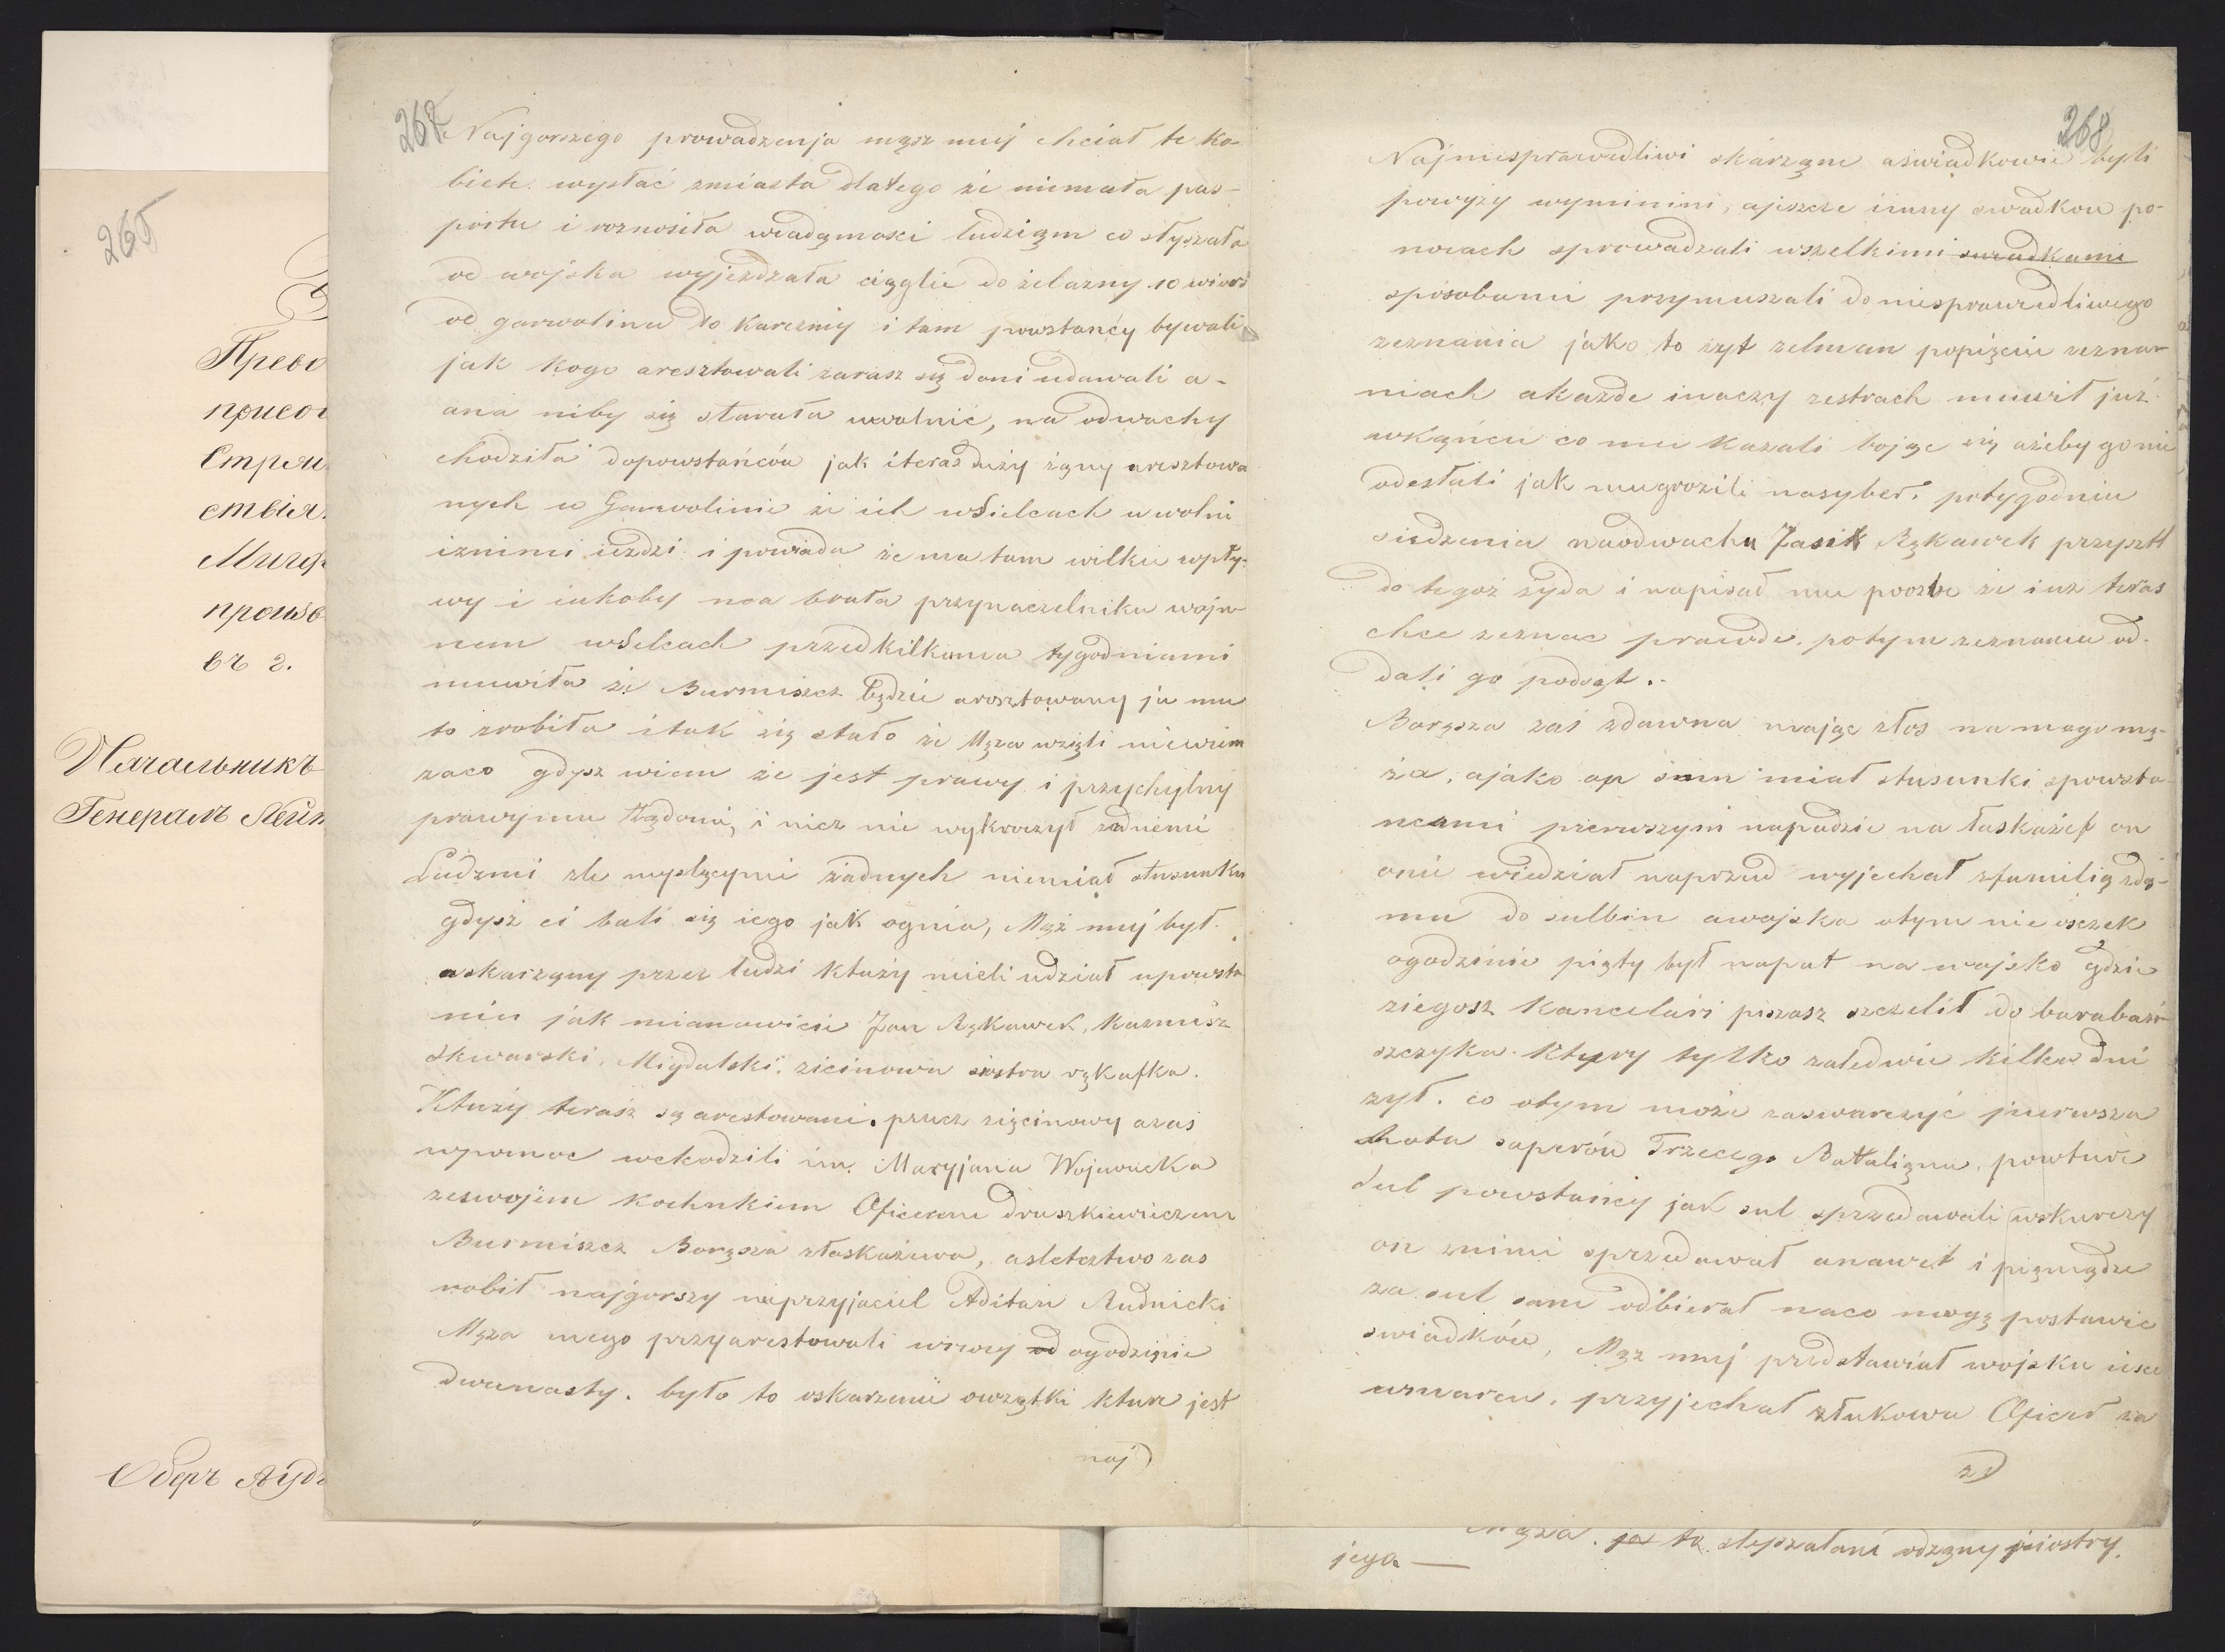 265
Прево
присоі
Стрѣл
ствія
Мигд
произв
въ г.
Начальникъ
Генералъ Лейт
Оберъ Ауд
267
Najgorszego prowadzenja mąsz muj chciał te ko-
biete wysłać zmiasta dlatego że nimiała pas-
portu i roznosiła wiadąmosci ludziąm co słyszała
od wojska wyjezdzała ciąglie do żelazny 10 wiorś
od garwolina do Karczmy i tam powstańcy bywali
jak kogo aresztowali zarasz się doni udawali a-
ana niby się starała uwolnić, na odwachy
chodziła dopowstańców jak i teras duży żąny aresztowa
nych w Garwolinie że ich wSielcach uwolni
iznimi iezdzi i powiada że ma tam wilkie wpły-
wy i iakoby moa brata przynaczelniku wojn
nem wSelcach przedkilkuma tygodniami
muwiła że Burmiszcz będzie aresztowany ja mu
to zrobiła itak się stało że Męża wzięli niewiem
zaco gdysz wiem że jest prawy i przychylny
prawymu Rządowi, i nicz nie wykroczył zadnemi
Ludzmi zle myslącymi żadnych niemiał stusunku
gdysż ci bali się iego jak ognia, Mąż muj był
askarzgny przez ludzi ktuży mieli udział upowsta
niu jak mianowicie Jan Rękawek, Kazmisz
Skwarski, Migdalski, zicinowa siostra rękafka.
Ktuży terasz są arestowani. przez zięcinowy azaś
wpomoc wchodzili im Maryjana Wojwucka
zeswojem kochnkiem Oficerem Druszkiewiczem
Burmiszcz Boręsza złaskażewa, asletcztwo zas
robił najgorszy nieprzyjaciel Aditari Rudnicki
Męża mego przyarestowali wiewij od ogodzinie
dwunasty. było to oskarżenie owsząłki kture jest
naj)
268
Najniesprawedliwi skarzgne aswiadkowie byli
powyży wyminini, ajeszcze iinny swadkow po-
nocach sprowadzali wszelkimi swiadkami
sposobami przymuszali do niesprawiedliwego
zeznania jako to żyt zelman popięciu zezna-
niach akażde inaczy zestrach muwił już
wkąńcu co mu kazali bojąc się ażeby go nie
odesłali jak mugrozili nasyber. potygodniu
siedzenia naodwachu Jasik Rękawek przyszłł
do tegoż żyda i napisał mu prozbe że iuz teras
chce zeznac prawde. potym zeznaniu od-
dali go podsąt..
Boręsza zaś zdawna mając złos na mego mę-
ża, ajako on sam miał stusunki spowsta
ncami pierwszym napadzie na łaskażef on
onie wiedział naprzud wyjechał zfamilią zdą-
mu do sulbin awojska otym nie oszczek
ogodzinie pięty był naput na wojsko gdzie
ziegosz Kancelari piszasz szczelił do baraban
szczyka. Ktury tylko zaledwie kilka dni
żył. co otym może zaswarczyć pierwsza
Rota saperów Trzecego Bataliąnu, powture
Sul powstańcy jak sul sprzedawali wskurczy
on znimi sprzedawał anawet i piąnądze
za sul sam odbierał naco mogę postawic
swiadków, Mąż muj predstawiał wojsku iesce
wmarcu. przyjechał złukowa Oficer za
za)
Męża. ja to slepzałani odzgny jiiostry.
jego —